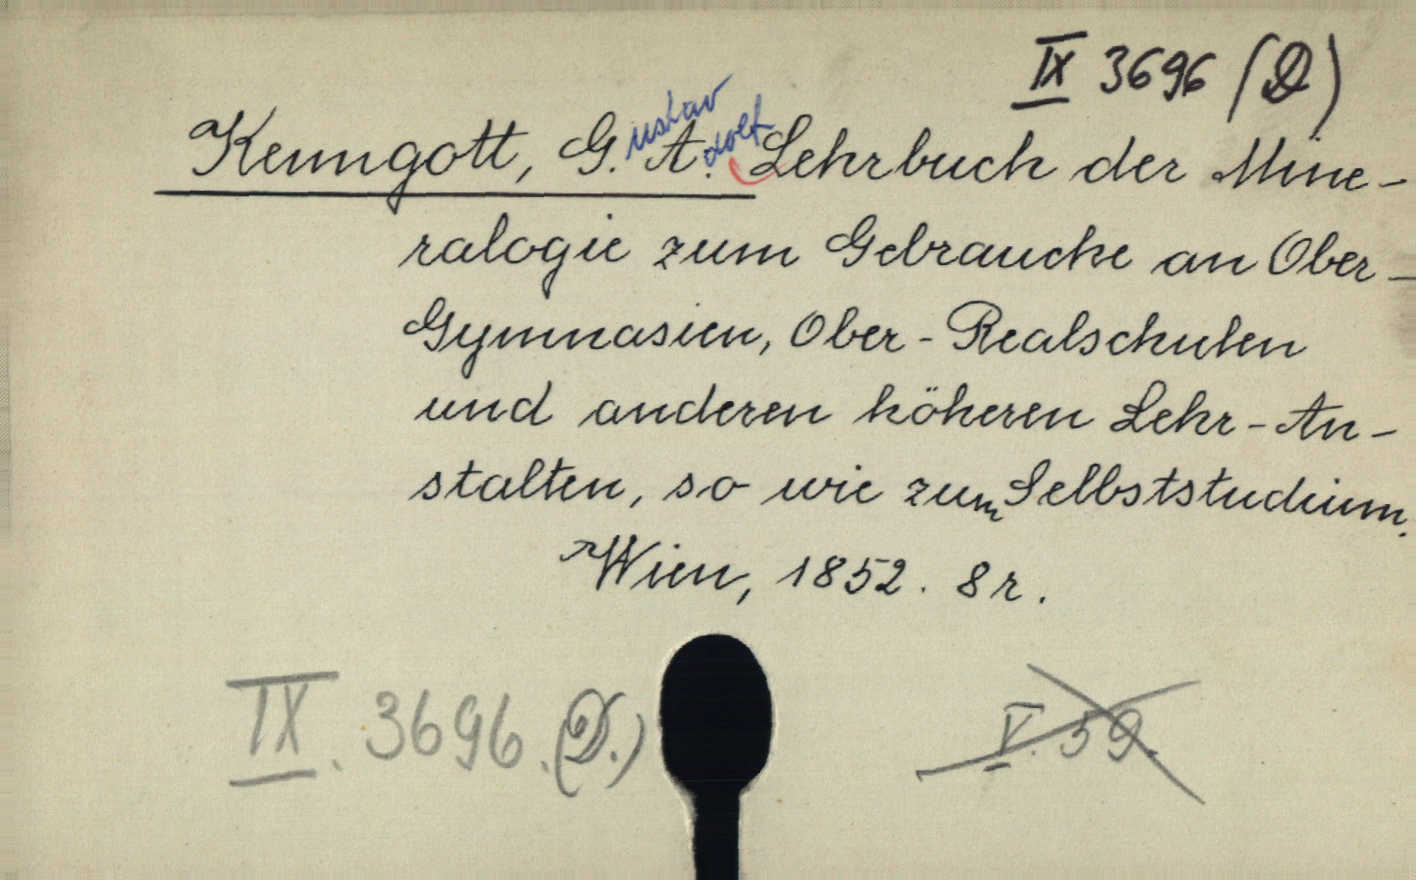 IX 3696 (D)
Kenngott, G.ustav A.dolf Lehrbuch der Mine-
ralogie zum Gebrauche an Ober-
Gymnasien, Ober-Realschulen
und anderen höheren Lehr-An-
stalten, so wie zum Selbststudium.
Wien, 1852. 8r.
IX. 3696. (D.)
V. 59.